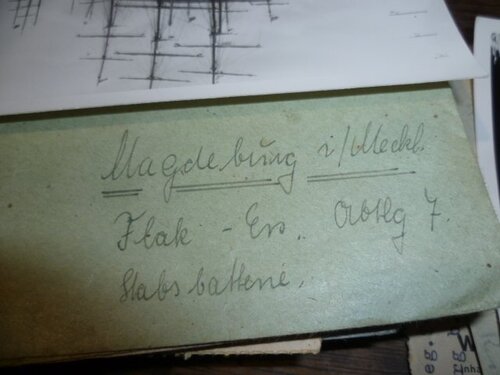 Magdeburg i/Meckl.
Flak - Ers. Abtlg 7.
Stabsbatterie.
eg.